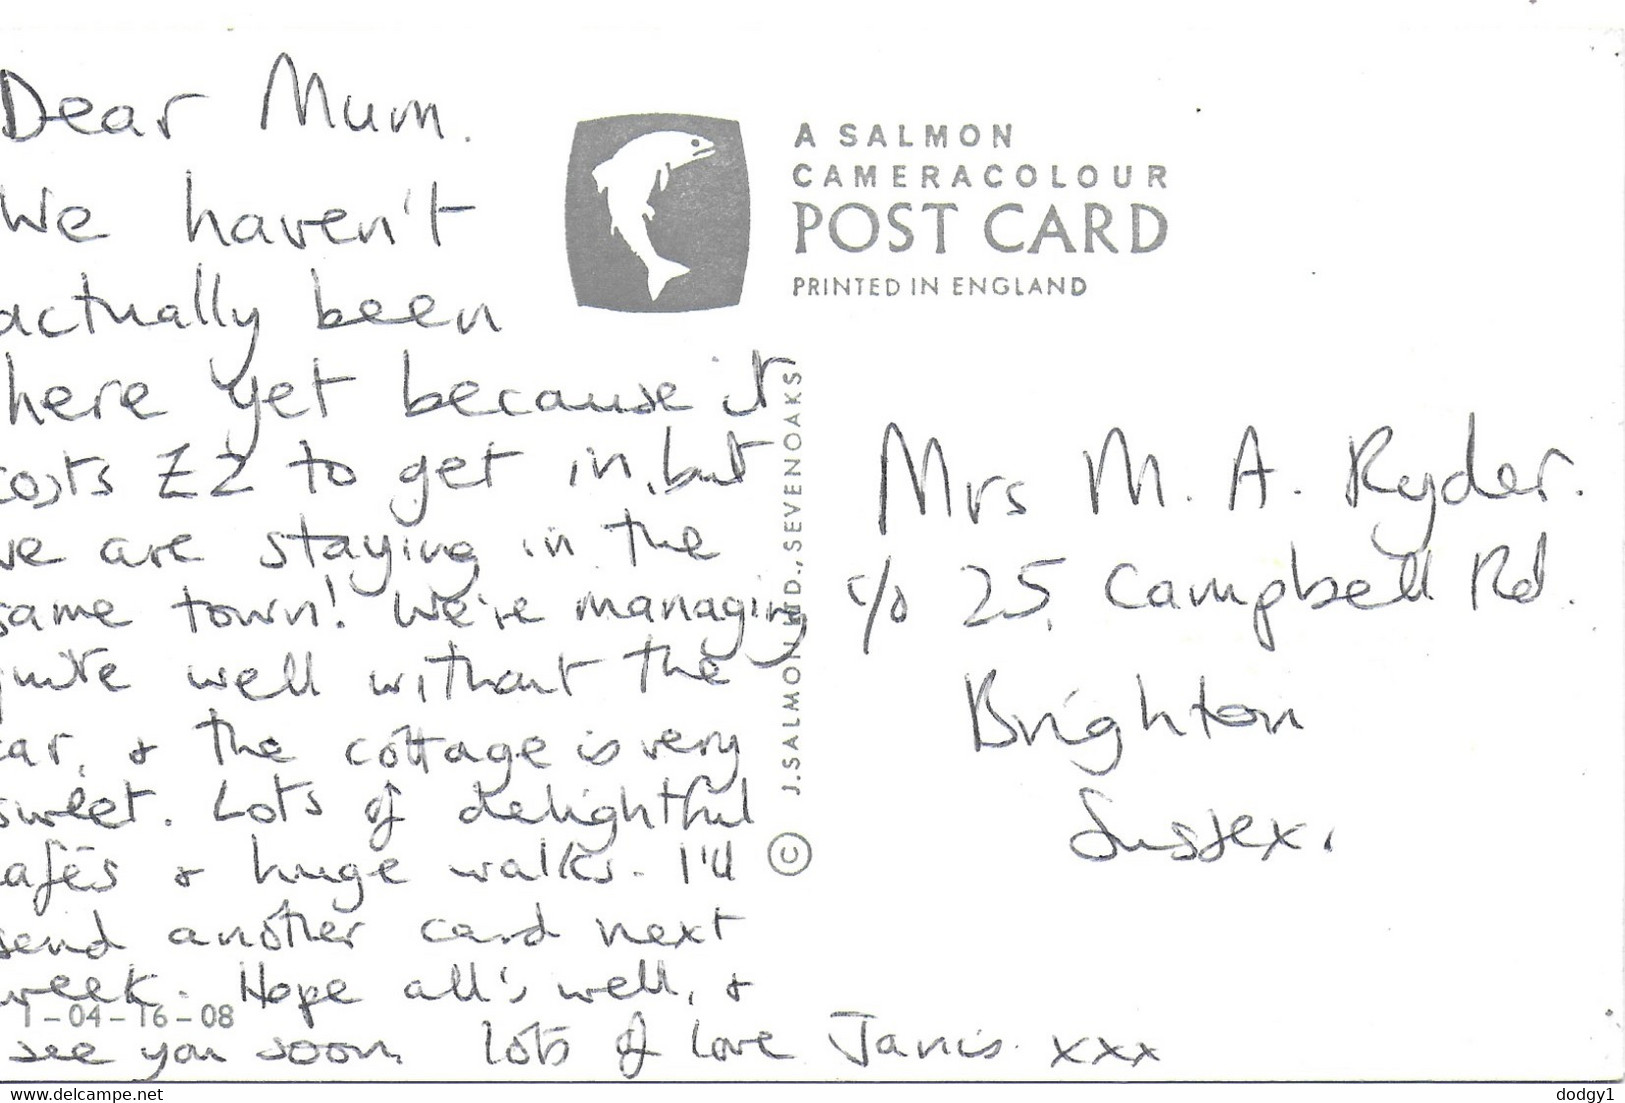 Dear Mum.
We haven't
actually been
here yet because it
costs £2 to get in, but
we are staying in the
same town! We're managing
quite well without the
car, & the cottage is very
sweet. Lots of delightful
cafés & huge walks. I'll
send another card next
week. Hope all's well, &
see you soon. Lots of love Janis. xxx
1-04-16-08
A SALMON
CAMERACOLOUR
POST CARD
PRINTED IN ENGLAND
© J. SALMON LTD., SEVENOAKS
Mrs M. A. Ryder.
c/o 25, Campbell Rd.
Brighton
Sussex.
www.delcampe.net
dodgy1